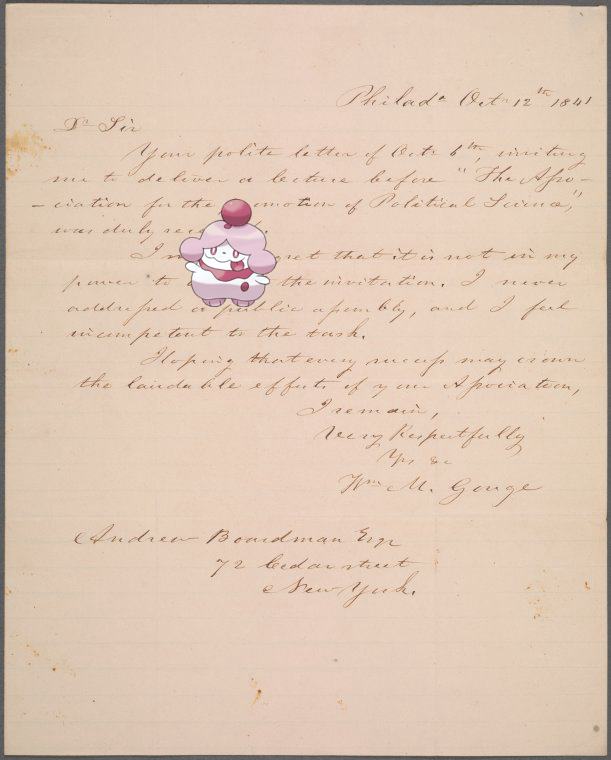 Philada Octr 12th 1841
Dr Sir
Your polite letter of Octr 6th, inviting
me to deliver a lecture before "The Asso-
-ciation for the omotion of Political Science,"
was duly
I that it is not in my
power to the invitation. I never
addressed a public assembly, and I feel
incompetent to the task.
Hoping that every success may crown
the laudable efforts of your Association,
I remain,
Very Respectfully
Yrs &c
Wm M. Gouge
Andrew Boardman Esqr
72 Cedar street
New York.